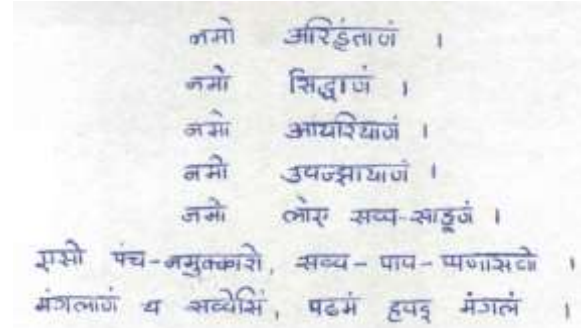 नमो अरिहंताणं ।
नमो सिद्धाणं ।
नमो आयरियाणं ।
नमो उवज्झायाणं ।
नमो लोए सव्व-साहूणं ।
एसो पंच-नमुक्कारो, सव्व-पाव-प्पणासणो ।
मंगलाणं च सव्वेसिं, पढमं हवइ मंगलं ।